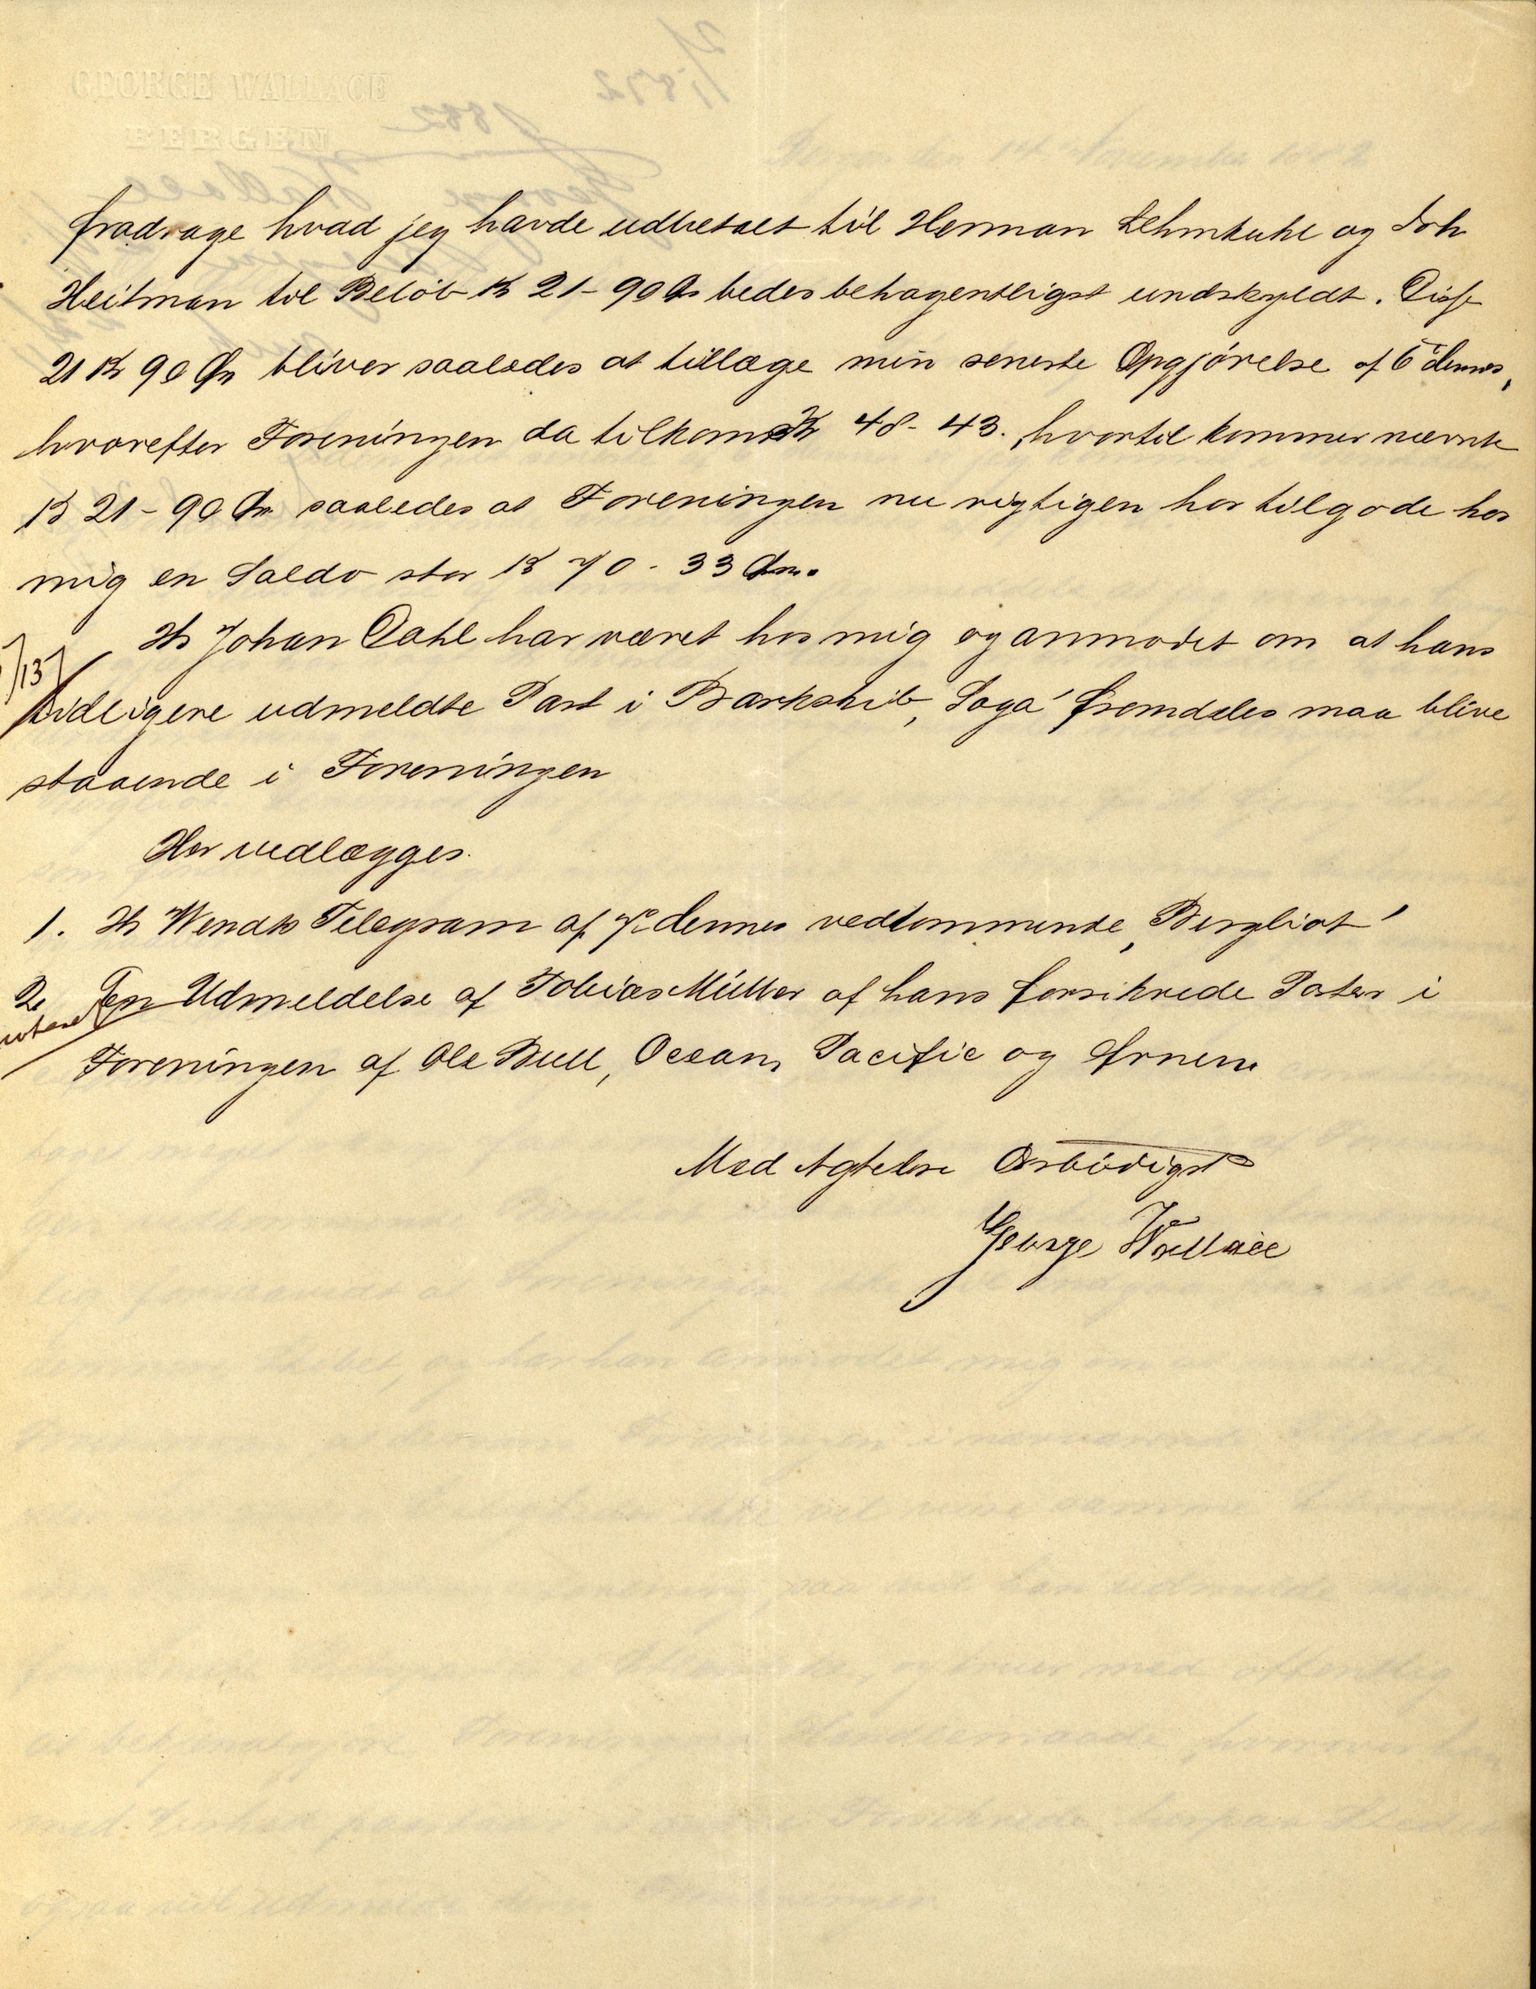 GEORGE WALLACE
BERGEN
fradrage hvad jeg havde udbetalt til Herman Lehmkuhl og Joh
Heitman til Beløb Kr 21-90 Øre bedes behagentligst undskyldt. Disse
21 Kr 90 Ør bliver saaledes at tillæge min seneste Opgjørelse af 6 dennes,
hvorefter Foreningen da tilkom Kr 48-43. hvortil kommer nævnte
Kr 21-90 Ør saaledes at Foreningen nu rigtigen har tilgode hos
mig en Saldo stor Kr 70-33 Øre.
Hr Johan Dahl har været hos mig og anmodet om at hans
tidligere udmeldte Part i Barkskib „Saga" fremdeles maa blive
staaende i Foreningen
Her vedlægges.
1. Hr Wendts Telegram af 7de dennes vedkommende „Bergliot"
2. En Udmeldelse af Tobias Müller af hans forsikrede Parter i
Foreningen af Ole Bull, Ocean, Pacific og Ørnen
Med Agtelse Ærbødigst
George Wallace